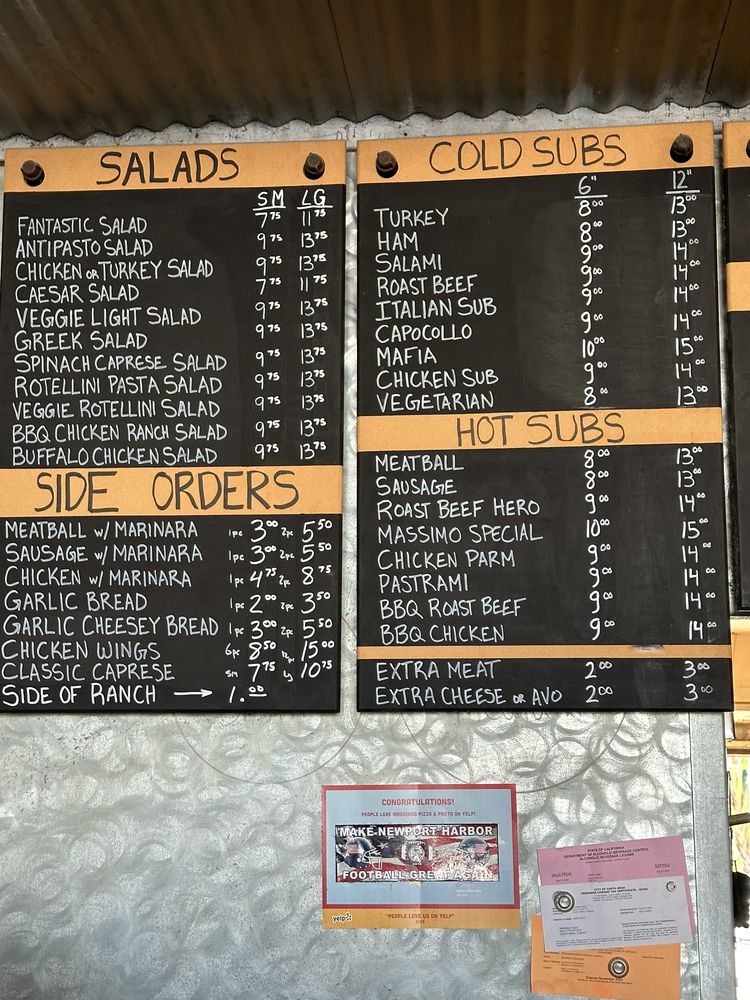 SALADS
SM LG
FANTASTIC SALAD 7⁷⁵ 11⁷⁵
ANTIPASTO SALAD 9⁷⁵ 13⁷⁵
CHICKEN OR TURKEY SALAD 9⁷⁵ 13⁷⁵
CAESAR SALAD 7⁷⁵ 11⁷⁵
VEGGIE LIGHT SALAD 9⁷⁵ 13⁷⁵
GREEK SALAD 9⁷⁵ 13⁷⁵
SPINACH CAPRESE SALAD 9⁷⁵ 13⁷⁵
ROTELLINI PASTA SALAD 9⁷⁵ 13⁷⁵
VEGGIE ROTELLINI SALAD 9⁷⁵ 13⁷⁵
BBQ CHICKEN RANCH SALAD 9⁷⁵ 13⁷⁵
BUFFALO CHICKEN SALAD 9⁷⁵ 13⁷⁵
SIDE ORDERS
MEATBALL W/ MARINARA 1pc 3⁰⁰ 2pc 5⁵⁰
SAUSAGE W/ MARINARA 1pc 3⁰⁰ 2pc 5⁵⁰
CHICKEN W/ MARINARA 1pc 4⁷⁵ 2pc 8⁷⁵
GARLIC BREAD 1pc 2⁰⁰ 2pc 3⁵⁰
GARLIC CHEESEY BREAD 1pc 3⁰⁰ 2pc 5⁵⁰
CHICKEN WINGS 6pc 8⁵⁰ 12pc 15⁰⁰
CLASSIC CAPRESE SM 7⁷⁵ LG 10⁷⁵
SIDE OF RANCH → 1.⁰⁰
COLD SUBS
6" 12"
TURKEY 8⁰⁰ 13⁰⁰
HAM 8⁰⁰ 13⁰⁰
SALAMI 9⁰⁰ 14⁰⁰
ROAST BEEF 9⁰⁰ 14⁰⁰
ITALIAN SUB 9⁰⁰ 14⁰⁰
CAPOCOLLO 9⁰⁰ 14⁰⁰
MAFIA 10⁰⁰ 15⁰⁰
CHICKEN SUB 9⁰⁰ 14⁰⁰
VEGETARIAN 8⁰⁰ 13⁰⁰
HOT SUBS
MEATBALL 8⁰⁰ 13⁰⁰
SAUSAGE 8⁰⁰ 13⁰⁰
ROAST BEEF HERO 9⁰⁰ 14⁰⁰
MASSIMO SPECIAL 10⁰⁰ 15⁰⁰
CHICKEN PARM 9⁰⁰ 14⁰⁰
PASTRAMI 9⁰⁰ 14⁰⁰
BBQ ROAST BEEF 9⁰⁰ 14⁰⁰
BBQ CHICKEN 9⁰⁰ 14⁰⁰
EXTRA MEAT 2⁰⁰ 3⁰⁰
EXTRA CHEESE OR AVO 2⁰⁰ 3⁰⁰
CONGRATULATIONS!
PEOPLE LOVE MASSIMOS PIZZA & PASTA ON YELP!
MAKE NEWPORT HARBOR
FOOTBALL GREAT AGAIN
yelp
"PEOPLE LOVE US ON YELP"
STATE OF CALIFORNIA
DEPARTMENT OF ALCOHOLIC BEVERAGE CONTROL
ALCOHOLIC BEVERAGE LICENSE
CITY OF COSTA MESA
BUSINESS LICENSE TAX CERTIFICATE